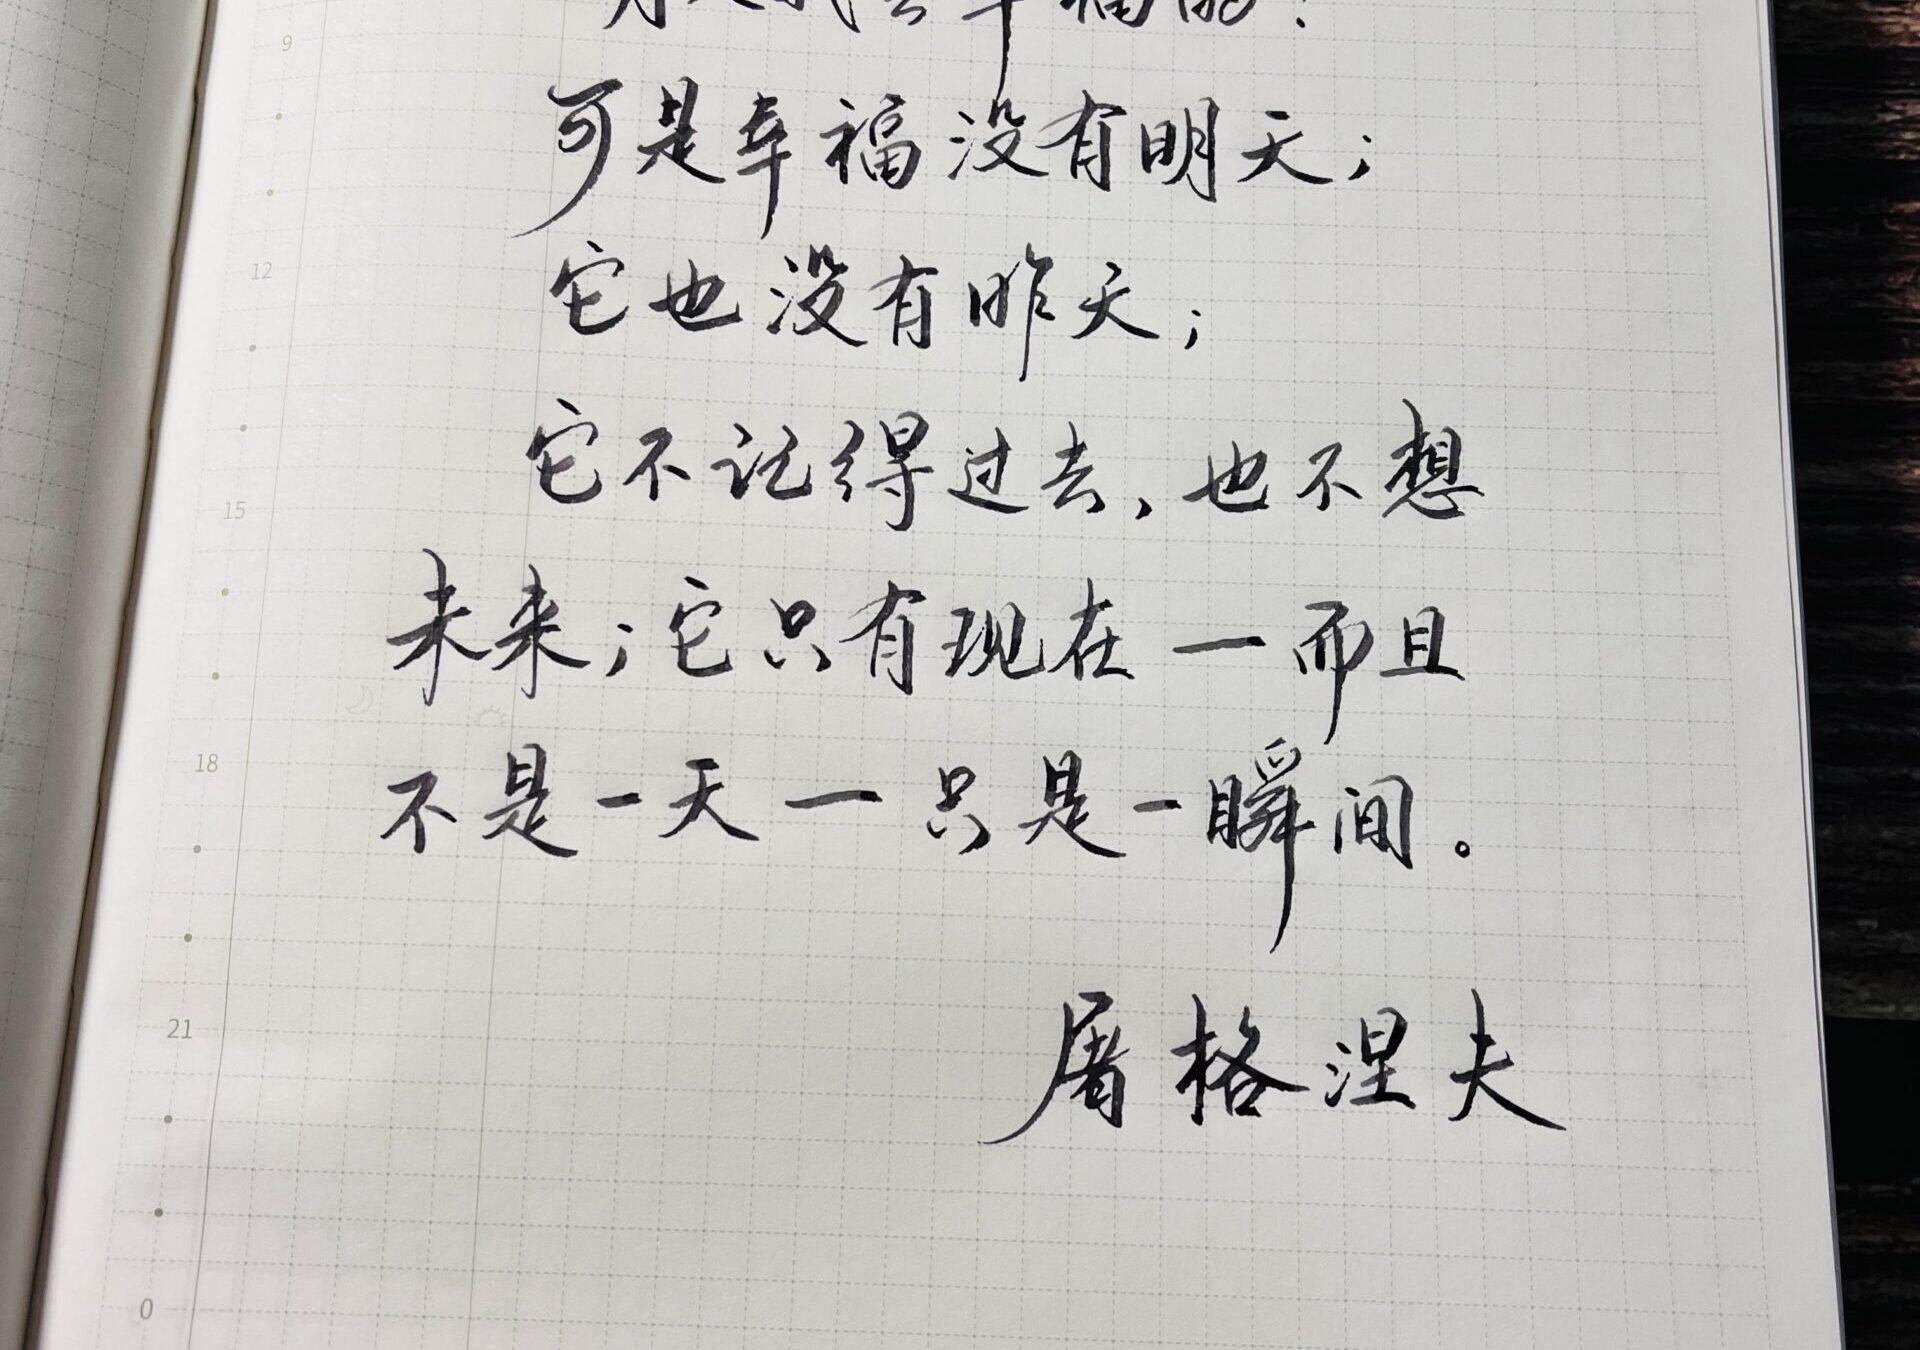 9
可是幸福没有明天；
12
它也没有昨天；
它不记得过去，也不想
15
未来；它只有现在一而且
18
不是一天一只是一瞬间。
21
屠格涅夫
0